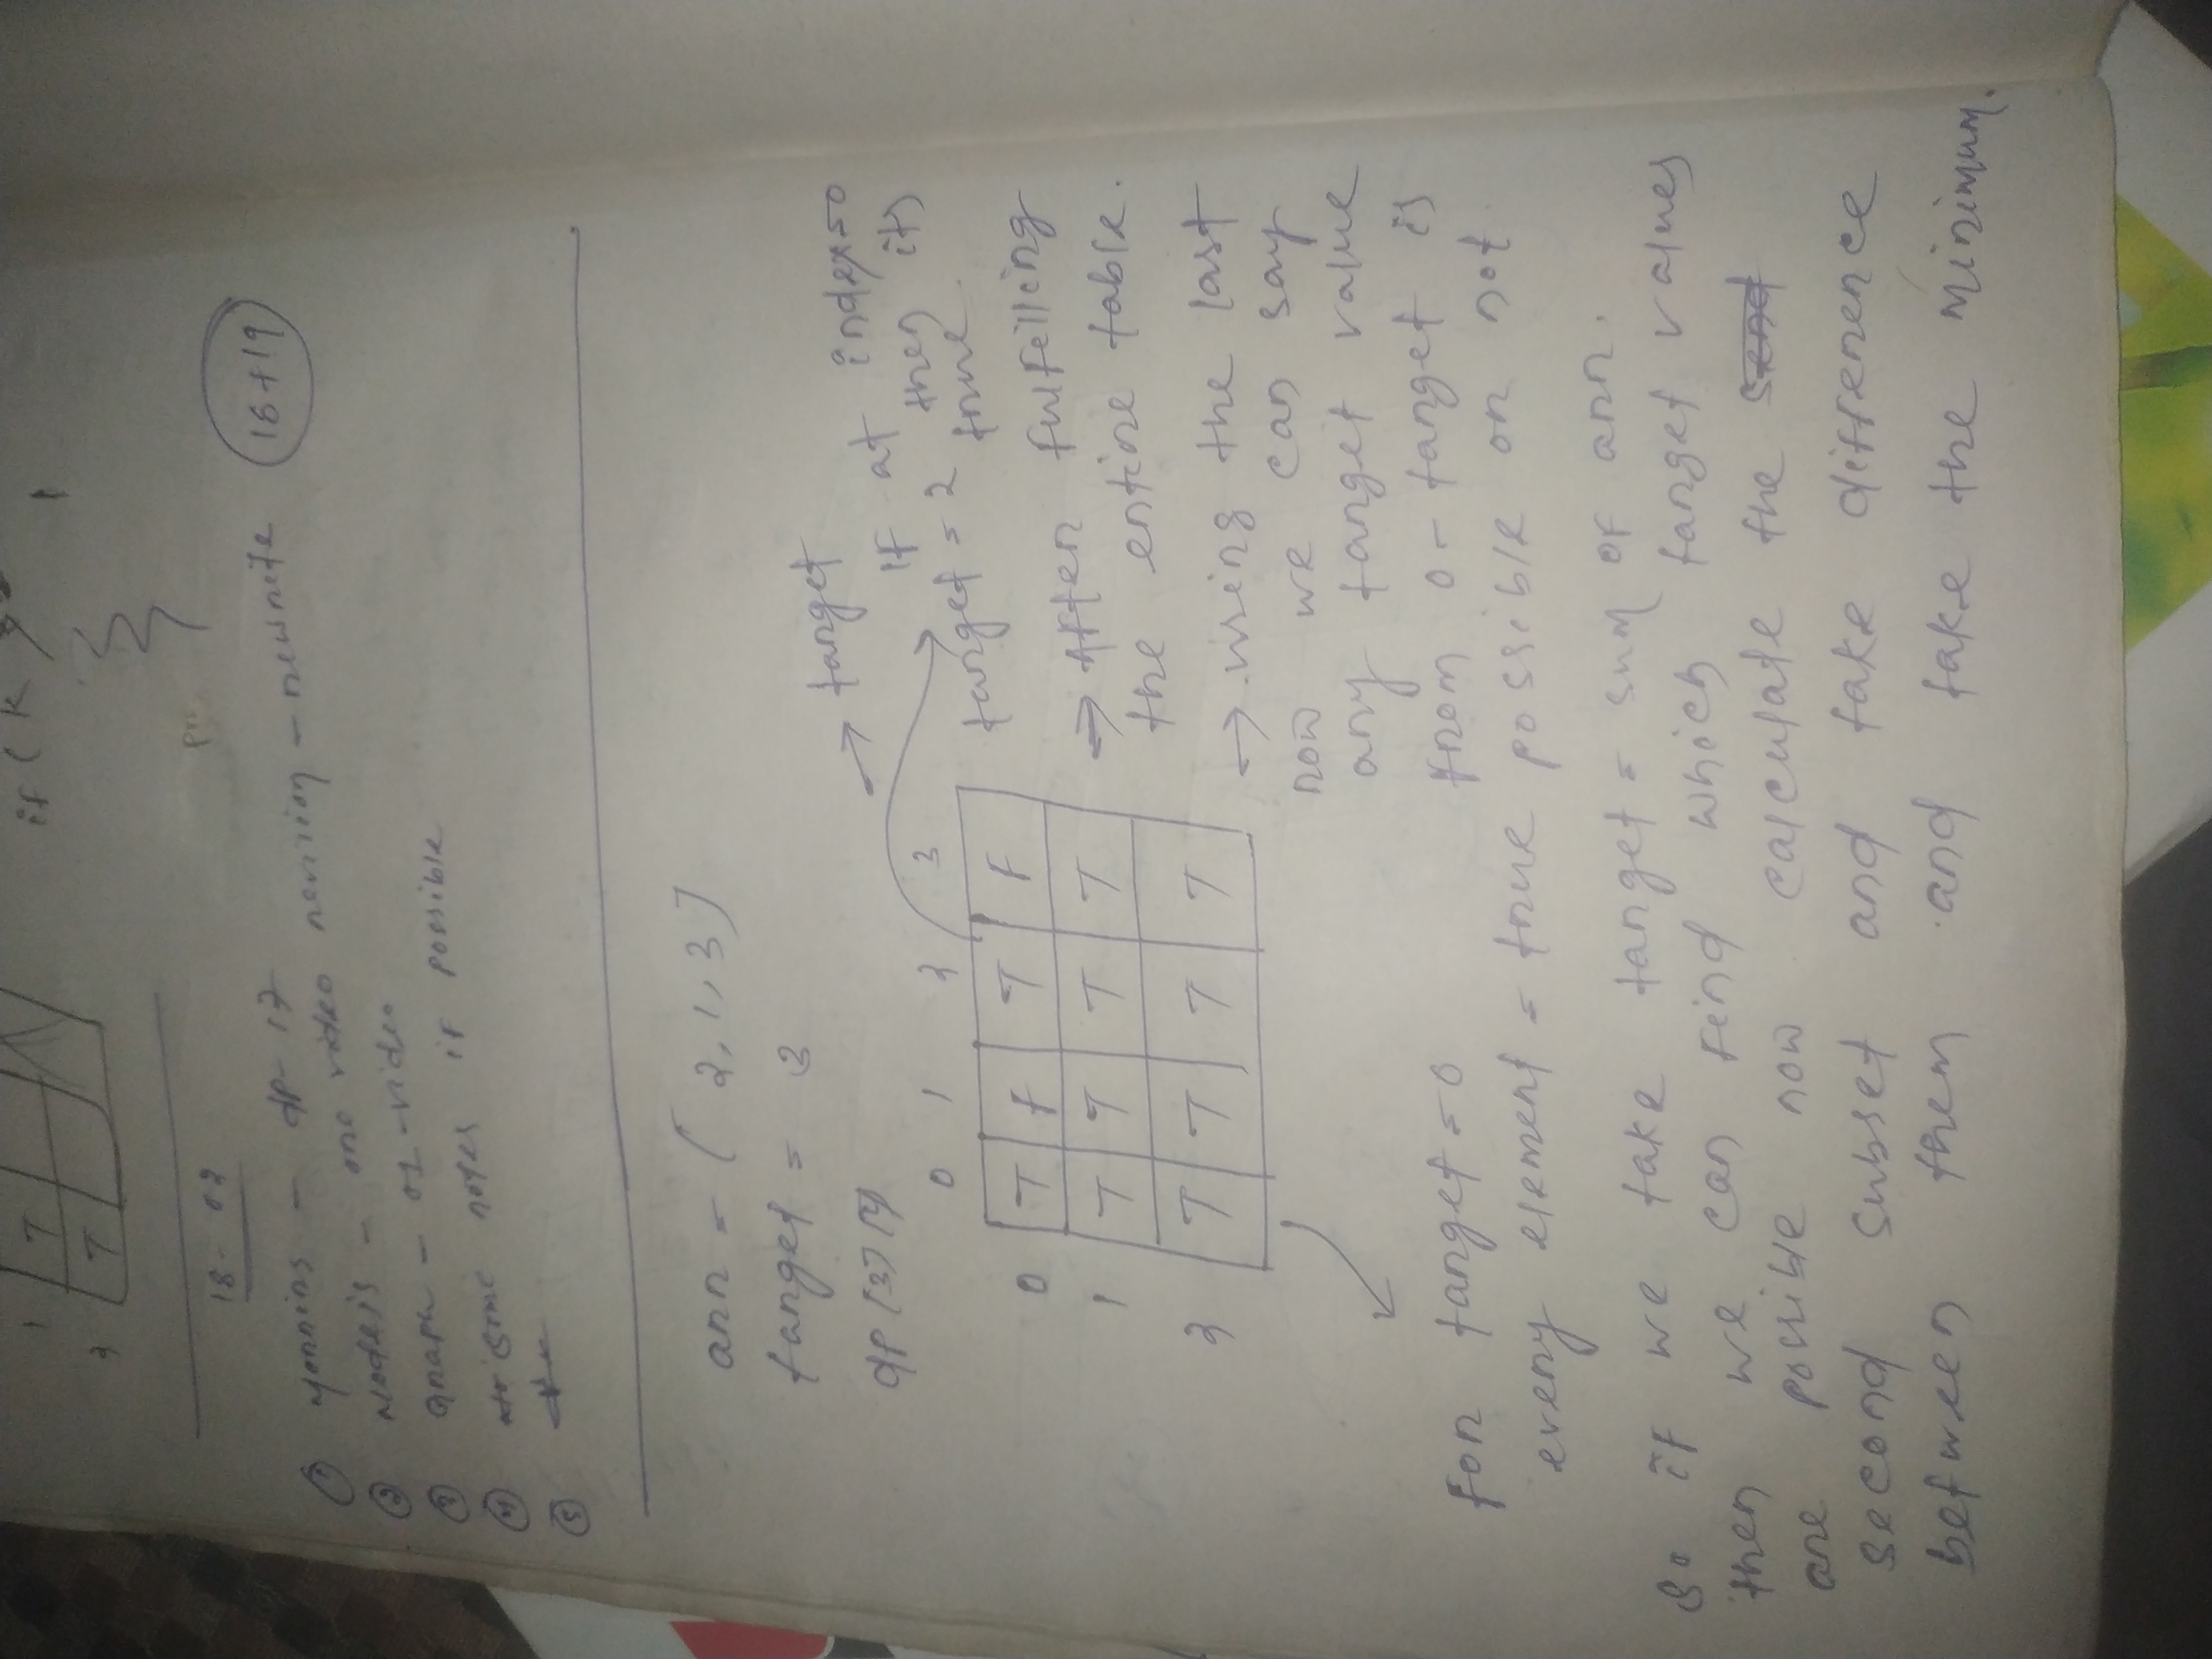 1 T
2 T
if ( k >
18-02
① Morning - dp-17
② Nodejs - one video revision - rewrite
18+19
③ Graph - 01-video
④ some notes if possible
⑤
arr = [ 2, 1, 3 ]
target = 3
dp [3] [4]
→ target
0 1 2 3
0 T F T F
1 T T T T
2 T T T T
If at index=0
target = 2 then its
true.
→ After fulfilling
the entire table.
→ using the last
row we can say
any target value
from 0 - target is
possible or not
for target = 0
every element = true
So if we take target = sum of arr.
then we can find which target values
are possible now calculate the
second subset and take difference
between them and take the minimum.